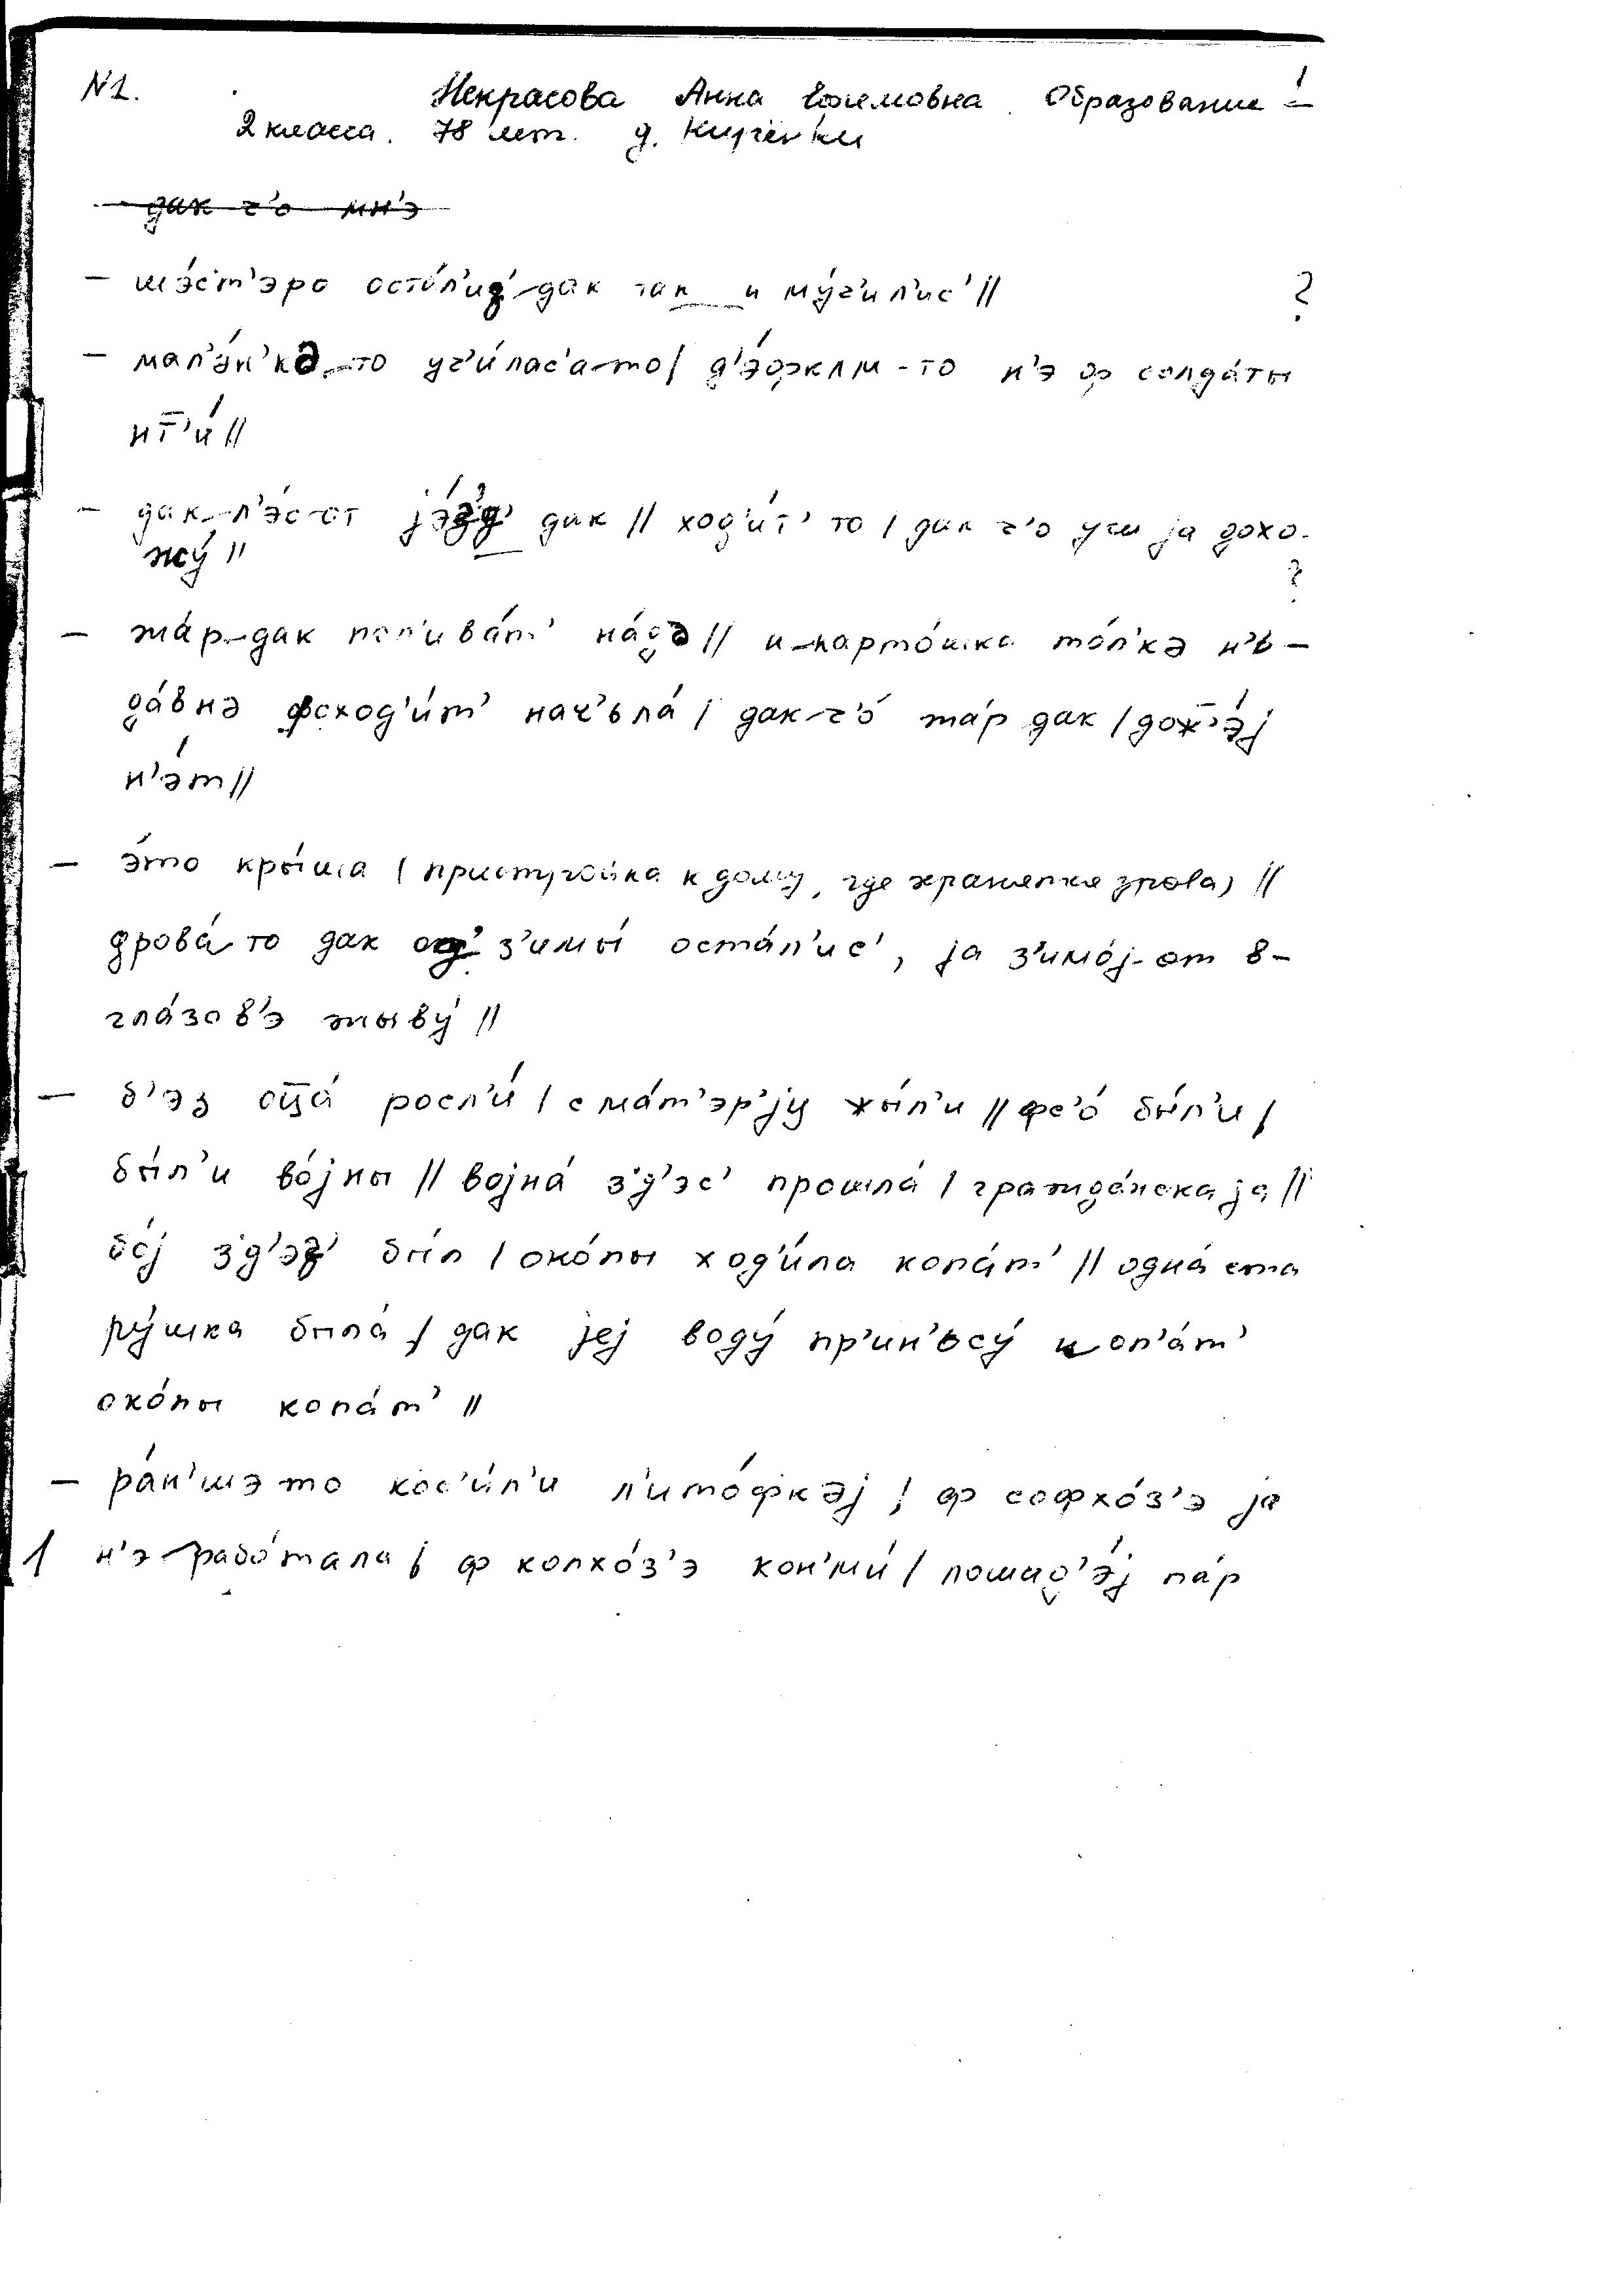 N1. Некрасова Анна Ефимовна. Образование –
2 класса. 78 лет. д.
дак ч'о мн'э
– шэ́с'т'эро оста́л'из'‿дак так и му́ч'ил'ис' || ?
– мал'э́н'кə‿то уч'и́лас'а‿то | д'э́фкам-то н'э ф солда́ты
ит̅'и́ ||
– дак‿л'э́с-от jэ́з'д' дак || ход'и́т' то | дак ч'о уш ja дохо-
жу́ ||
?
– жа́р‿дак пол'ива́т' на́дə || и‿карто́шка то́л'кə н'ь-
да́внə фсход'и́т' нач'ьла́ | дак‿ч'о́ жа́р дак | дож̅'э́j
н'э́т ||
– э́то кры́ша (пристройка к дому, где хранятся дрова) ||
дрова́‿то дак од' з'имы́ оста́л'ис', ja з'имо́j-от в-
гла́зов'э жыву́ ||
– б'эз оц̅а́ росл'и́ | с ма́т'эр'jу жы́л'и || фс'о́ бы́л'и |
бы́л'и во́jны || воjна́ з'д'эс' прошла́ | гражда́нскаjа ||
бо́j з'д'эз' бы́л | око́пы ход'и́ла копа́т' || одна́ ста
ру́шка была́ | дак jеj воду́ пр'ин'ьсу́ и‿оп'а́т'
око́пы копа́т' ||
– ра́н'шэ то кос'и́л'и л'ито́фкəj | ф софхо́з'э ja
1 н'э‿рабо́тала | ф колхо́з'э кон'ми́ | лошад'э́j па́р